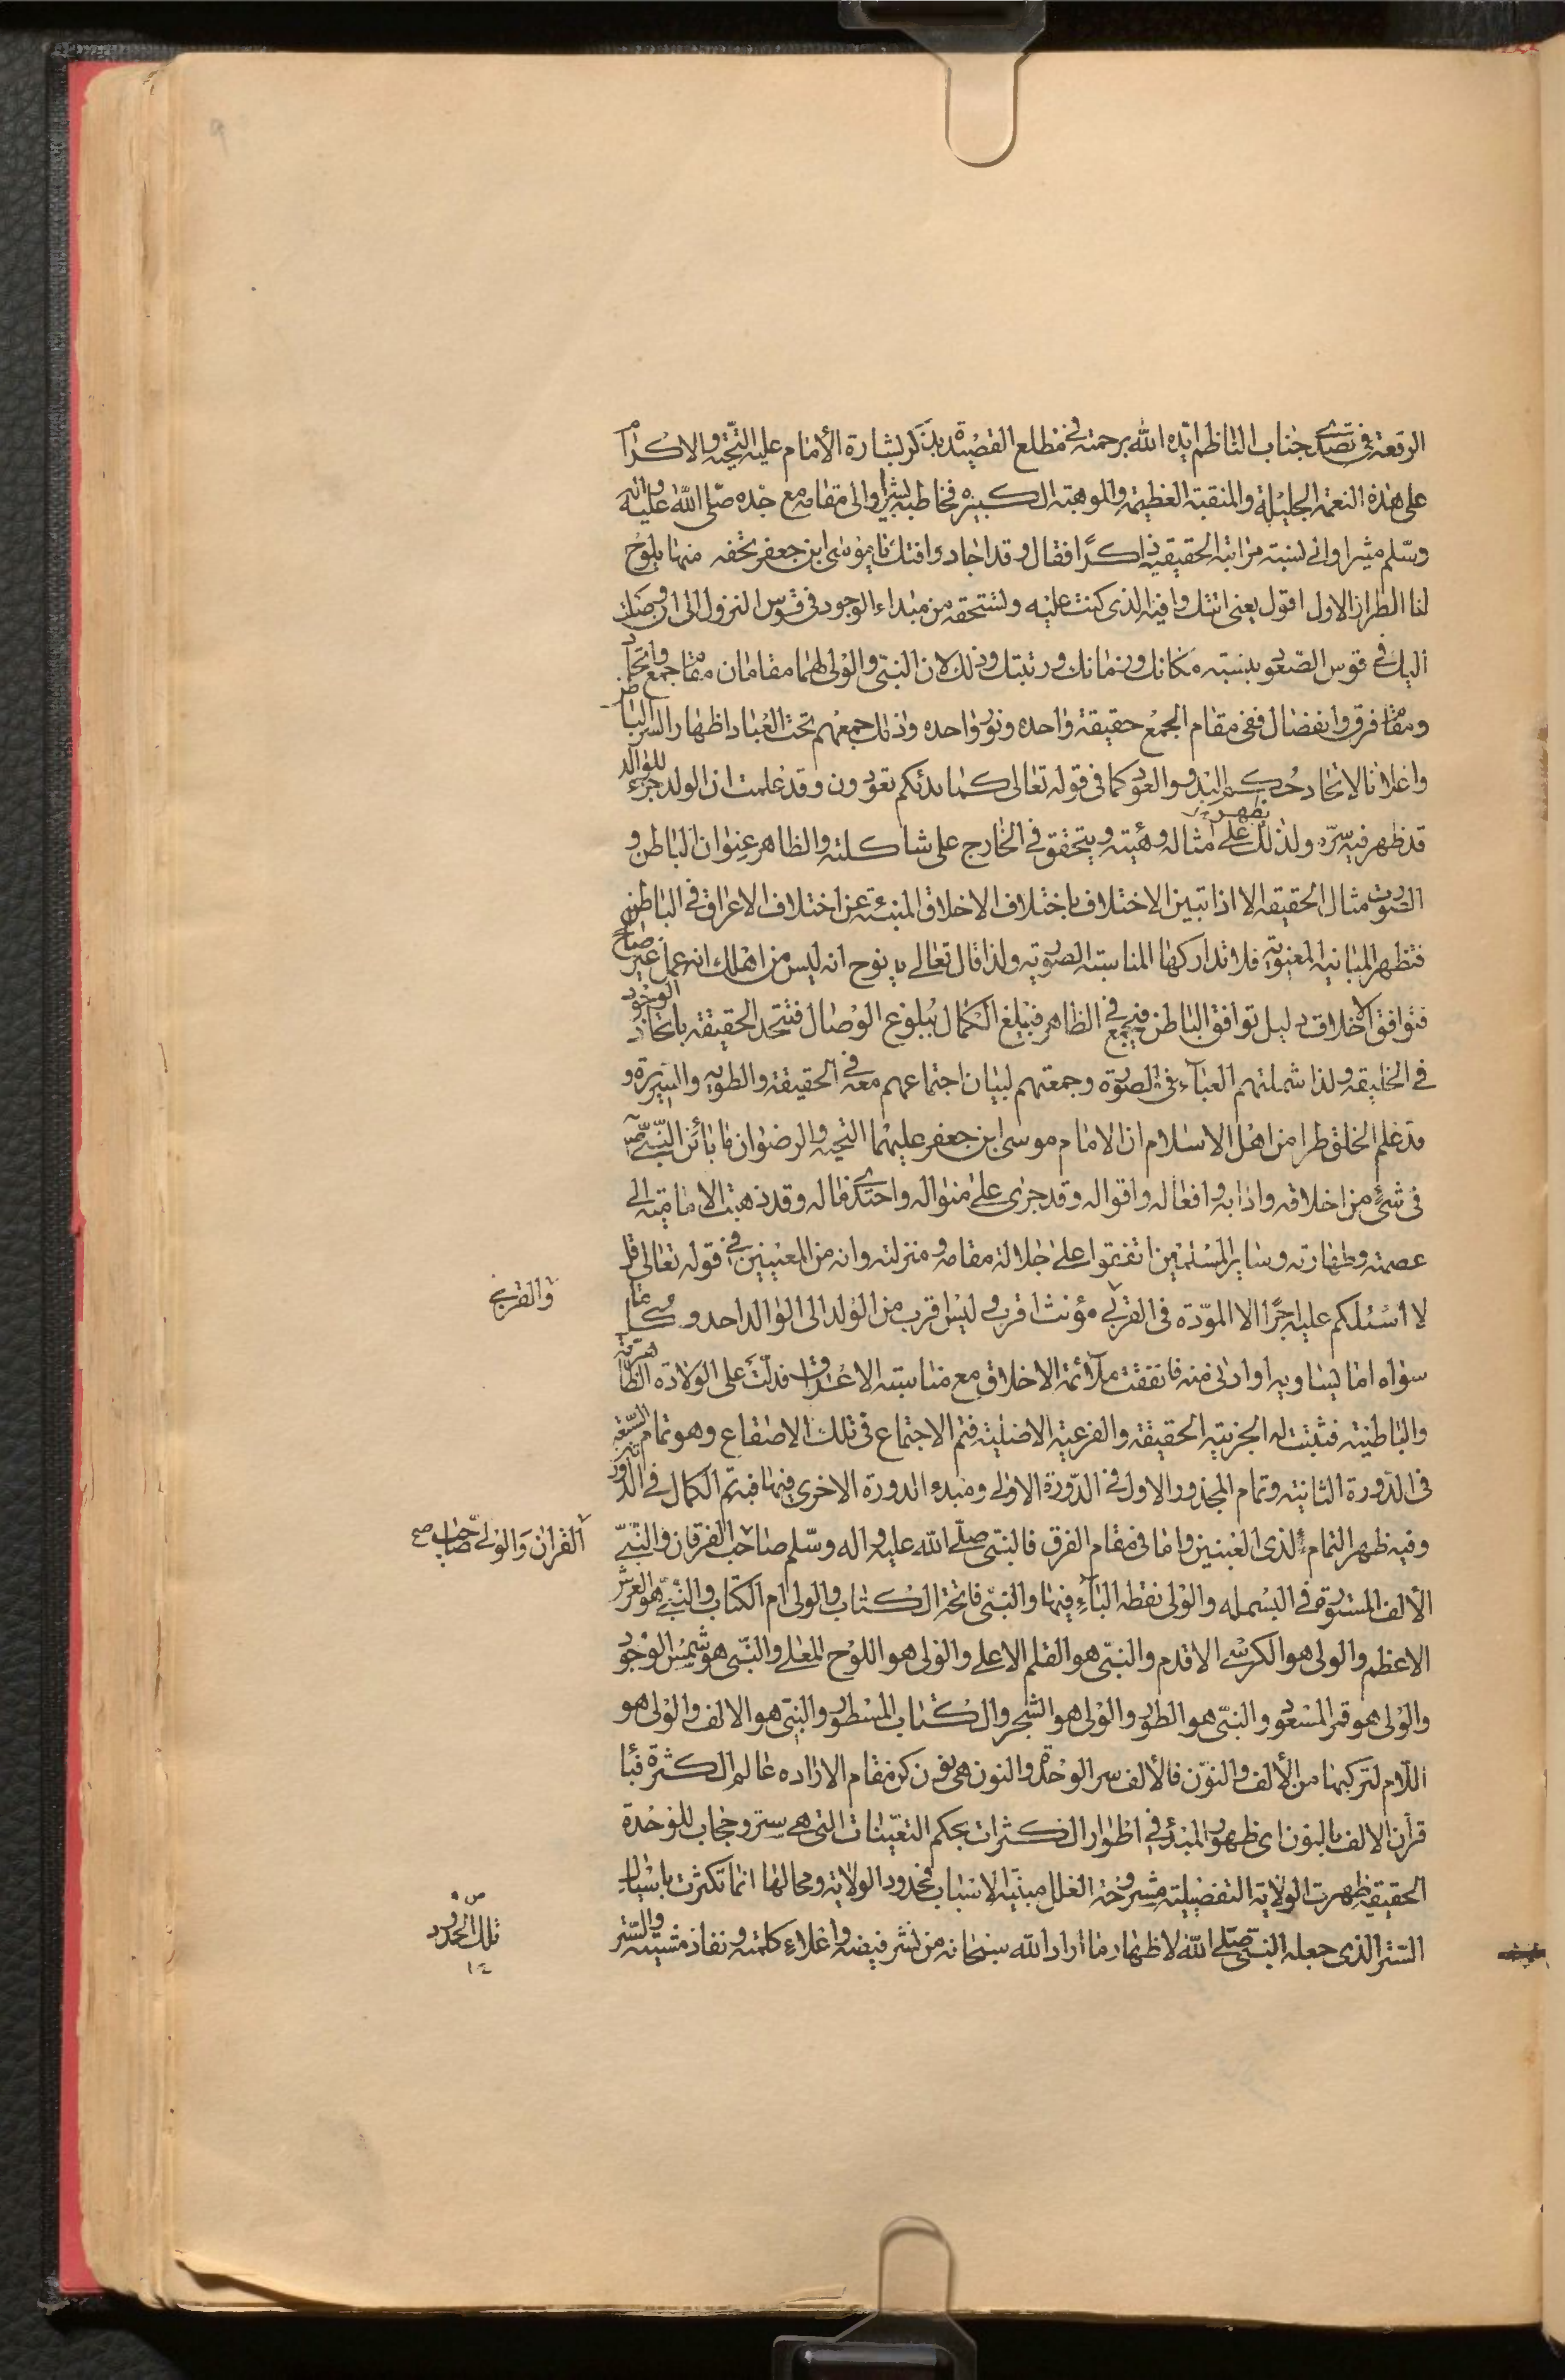 الرفعة فى تصدى جناب الناظم ايّده الله برحمته فى مطلع القصيدة بذكر بشارة الأمام عليه التّحيّة والاكرام
على هذه النعمة الجليلة والمنقبة العظيمة والموهبة الكبيرة فخاطبه بشيرا والى مقامه مع جده صلى الله عليه واله
وسلم مشيرا والى نسبته مراتبه الحقيقية ذاكرًا فقال وقد اجاد وافتك يا موسى ابن جعفر تحفه منها يلوح
لنا الطراز الاول اقول يعنى اتتك وافيه الذى كنت عليه وتستحقه من مبداء الوجود فى قوس النزول الى ان وصلت
اليك فى قوس الصّعود بنسبته مكانك وزمانك ورتبتك وذلك لان النبى والولى لهما مقامان مقام جمع واتحاد
ومقام فرق وانفصال ففى مقام الجمع حقيقة واحده ونور واحده ولذلك جمعهم تحت العباء اظهار السر الباطن
واعلانا لاتحاد حكم البدو والعود كما فى قوله تعالى كما بدئكم تعودون وقد علمت ان الولد جزء للوالد
قد ظهر فيه سرّه ولذلك يظهر على مثاله وهيئته ويتحقق فى الخارج على شاكلته والظاهر عنوان الباطن و
الصّورت مثال الحقيقه الا اذا تبين الاختلاف باختلاف الاخلاق المنبئة عن اختلاف الاعراق فى الباطن
فتظهر المباينه المعنويّه فلا تداركها المناسبته الصوريّه ولذا قال تعالى يا نوح انه ليس من اهلك انه عمل غير صالح
فتوافق الاخلاق دليل توافق الباطن فيجمع فى الظاهر فيبلغ الكمال ببلوغ الوصال فتتحد الحقيقة باتحاد الوجود
فى الخليقه ولذا شملتهم العبآء فى الصورة وجمعتهم لبيان اجتماعهم معه فى الحقيقة والطويه والسّيرة و
قد علم الخلق طرا من اهل الاسلام ان الامام موسى ابن جعفر عليهما التحيه والرضوان ما باين النبى ص
فى شئ من اخلاقه وادابه وافعاله واقواله وقد جرى على منواله واحتذى مثاله وقد ذهبت الاماميّه الى
عصمته وطهارته وساير المسلمين اتفقوا على جلالة مقامه ومنزلته وانه من المعنيين فى قوله تعالى قل
لا اسئلكم عليه اجرًا الا المودّة فى القربى مؤنث اقرب وليس اقرب من الولد الى الوالد احد وكل ما
والقربى
سواه اما يساويه او ادنى منه فاتفقت ملآئمة الاخلاق مع مناسبته الاعراق فدلّت على الولادة الظاهريّه
والباطنيته فثبتت له الجزئيه الحقيقه والفرعيّه الاصليّه فتم الاجتماع فى تلك الاصقاع وهو تمام السّبعة
فى الدّورة الثانيته وتمام المجذور الاول فى الدّورة الاولى ومبدء الدورة الاخرى فيها فيتم الكمال فى الدورتين
وفيه ظهر التمام لذى العينين واما فى مقام الفرق فالنبى صلّى الله عليه واله وسلم صاحب الفرقان والنبىّ
القران والولى صاحب صح
الألف المستوره فى البسمله والولى نقطه البآء فيها والنبى فاتحة الكتاب والولى ام الكتاب والنبىّ هو العرش
الاعظم والولى هو الكرسى الاقدم والنبى هو القلم الاعلى والولى هو اللوح المعلى والنبى هو شمس الوجود
والولى هو قمر المسعود والنبى هو الطور والولى هو الشجر والكتاب المسطور والنبى هو الالف والولى هو
اللام لتركبها من الألف والنون فالألف سر الوحدة والنون هى نون كن مقام الاراده عالم الكثرة فبا
قرأن الالف بالنون اى ظهور المبدء فى اطوار الكثرات بحكم التعيّنات التى هى ستر وحجاب للوحدة
الحقيقيه ظهرت الولاية التفصيليته مشروحة العلل مبيّنه الاسباب فحدود الولايه ومحالها انما تكثرت باسبال
تلك الحدود
١٤
الستر الذى جعله النبى صلّى الله لاظهار ما اراد الله سبحانه من نشر فيضه واعلاء كلمته ونفاذ مشيّته والستر